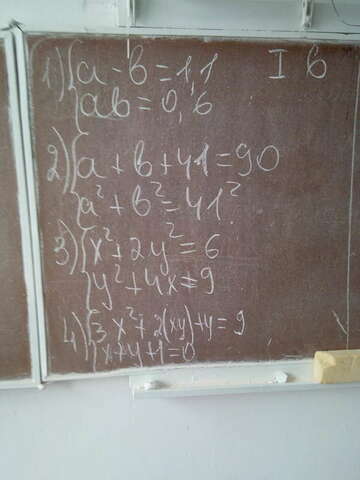 1) { a - b = 1,1 I b
ab = 0,6
2) { a + b + 41 = 90
a² + b² = 41²
3) { x² + 2y² = 6
y² + 4x = 9
4) { 3x² + 2(xy) + y = 9
x + y + 1 = 0